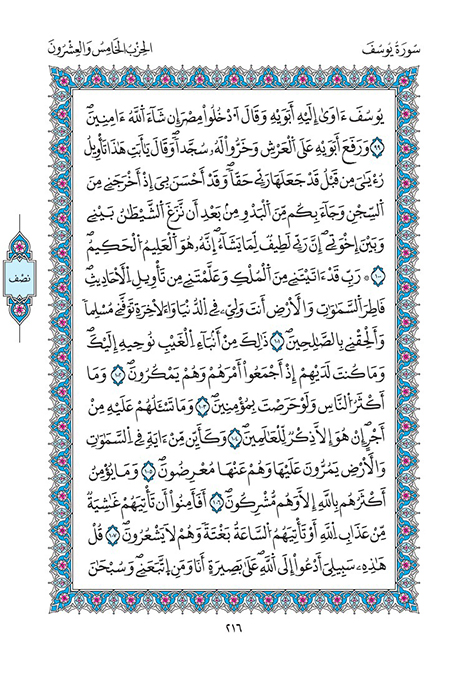 سُورَةُ يُوسُفَ
الحِزْبُ الخَامِسُ وَالعِشْرُونَ
يُوسُفَ ءَاوَىٰ إِلَيْهِ أَبَوَيْهِ وَقَالَ ٱدْخُلُواْ مِصْرَ إِن شَآءَ ٱللَّهُ ءَامِنِينَۖ
۝٩٩ وَرَفَعَ أَبَوَيْهِ عَلَى ٱلْعَرْشِ وَخَرُّواْ لَهُۥ سُجَّداٗۖ وَقَالَ يَٰٓأَبَتِ هَٰذَا تَأْوِيلُ
رُءْيَٰيَ مِن قَبْلُ قَدْ جَعَلَهَا رَبِّے حَقّاٗۖ وَقَدْ أَحْسَنَ بِيَ إِذْ أَخْرَجَنِے مِنَ
ٱلسِّجْنِ وَجَآءَ بِكُم مِّنَ ٱلْبَدْوِ مِنۢ بَعْدِ أَن نَّزَغَ ٱلشَّيْطَٰنُ بَيْنِے
وَبَيْنَ إِخْوَتِيَۖ إِنَّ رَبِّے لَطِيفٞ لِّمَا يَشَآءُۖ إِنَّهُۥ هُوَ ٱلْعَلِيمُ ٱلْحَكِيمُۖ
۝١٠٠ ۞ رَبِّ قَدَ ءَاتَيْتَنِے مِنَ ٱلْمُلْكِ وَعَلَّمْتَنِے مِن تَأْوِيلِ ٱلَاحَادِيثِۖ
فَاطِرَ ٱلسَّمَٰوَٰتِ وَٱلَارْضِ أَنتَ وَلِيِّۦ فِے ٱلدُّنْيَا وَٱلَاخِرَةِ تَوَفَّنِے مُسْلِماٗ
وَأَلْحِقْنِے بِالصَّٰلِحِينَۖ ۝١٠١ ذَٰلِكَ مِنَ أَنۢبَآءِ ٱلْغَيْبِ نُوحِيهِ إِلَيْكَۖ
وَمَا كُنتَ لَدَيْهِمُۥٓ إِذَ اَجْمَعُوٓاْ أَمْرَهُمْ وَهُمْ يَمْكُرُونَۖ ۝١٠٢ وَمَآ
أَكْثَرُ ٱلنَّاسِ وَلَوْ حَرَصْتَ بِمُؤْمِنِينَۖ ۝١٠٣ وَمَا تَسْـَٔلُهُمْ عَلَيْهِ مِنَ
اَجْرٍۖ إِنْ هُوَ إِلَّا ذِكْرٞ لِّلْعَٰلَمِينَۖ ۝١٠٤ وَكَأَيِّن مِّنَ ءَايَةٖ فِے ٱلسَّمَٰوَٰتِ
وَٱلَارْضِ يَمُرُّونَ عَلَيْهَا وَهُمْ عَنْهَا مُعْرِضُونَۖ ۝١٠٥ وَمَا يُؤْمِنُ
أَكْثَرُهُم بِاللَّهِ إِلَّا وَهُم مُّشْرِكُونَۖ ۝١٠٦ أَفَأَمِنُوٓاْ أَن تَأْتِيَهُمْ غَٰشِيَةٞ
مِّنْ عَذَابِ ٱللَّهِ أَوْ تَأْتِيَهُمُ ٱلسَّاعَةُ بَغْتَةٗ وَهُمْ لَا يَشْعُرُونَۖ ۝١٠٧ قُلْ
هَٰذِهِۦ سَبِيلِيَ أَدْعُوٓاْ إِلَى ٱللَّهِۖ عَلَىٰ بَصِيرَةٍ اَنَا وَمَنِ ٱتَّبَعَنِےۖ وَسُبْحَٰنَ
نصف
٢١٦